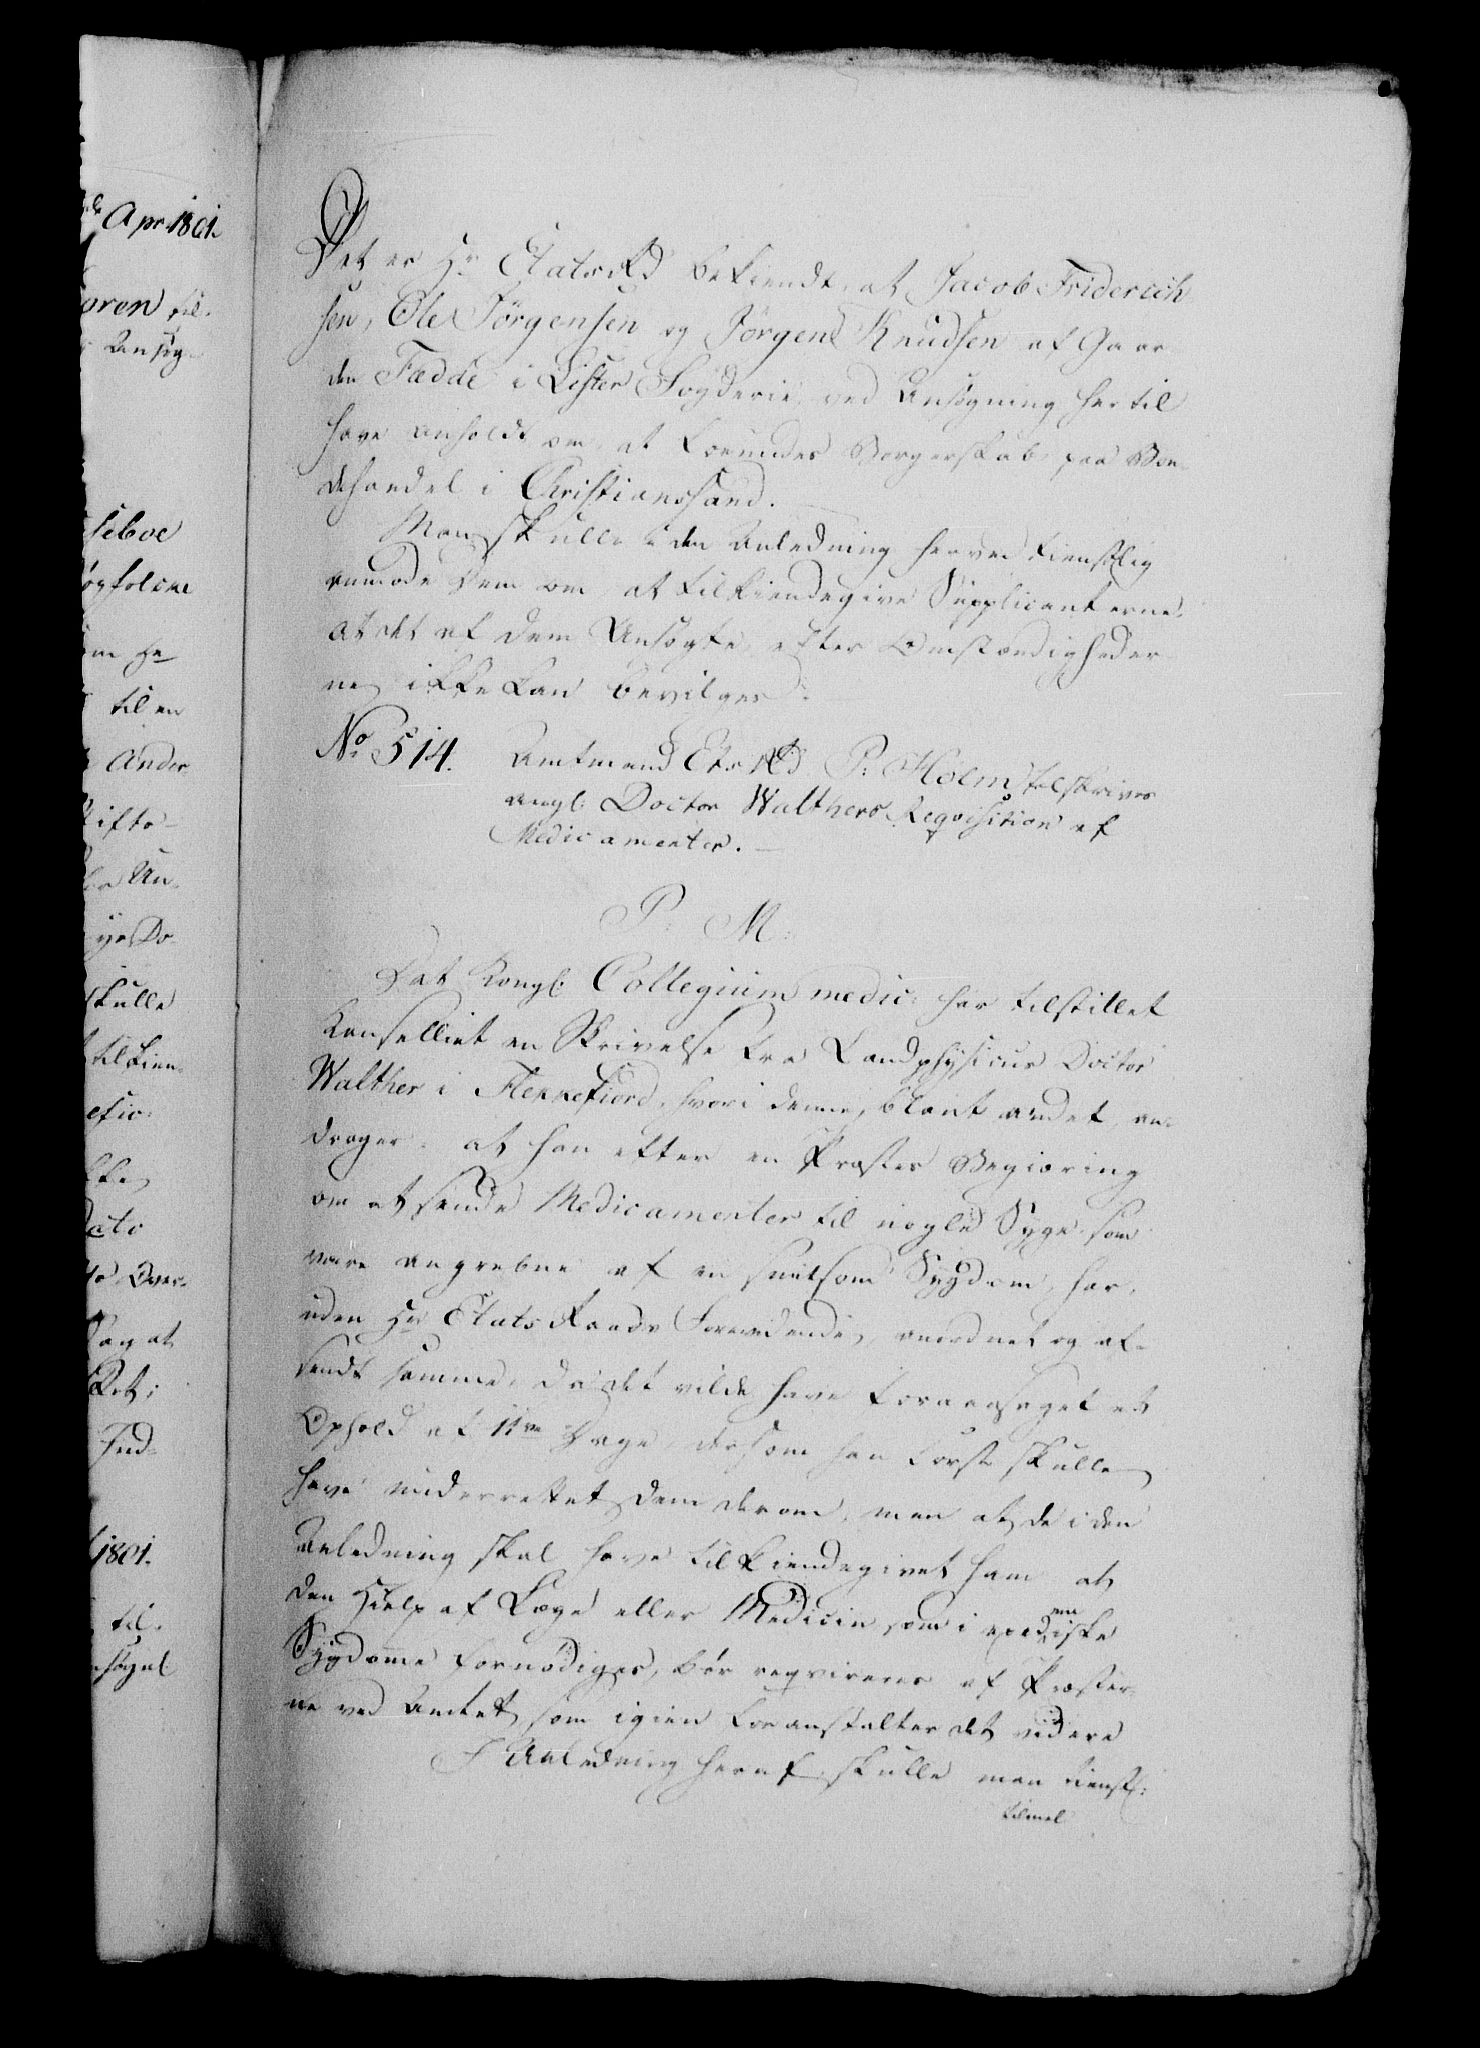 de Apr 1801.
oren til.
Ansøg-
seboe
om Hr
til en
Ander
tifts-
Un-
ye Do-
skulle
tilkien-
efic:
Dato
Over-
Sag at
Ret;
Ind-
1801.
til-
Det er Hr EtatsRd bekiendt, at Jacob Friderich
sen, Ole Jørgensen og Jørgen Knudsen af Gaar
den Fædde i Lister Fogderie ved Ansøgning hertil
have anholdt om at forundes Borgerskab paa Bon-
dehandel i Christianssand.
Man skulle i den Anledning herved tienstlig
anmode Dem om at tilkiendegive Supplicanterne,
at det af dem Ansøgte efter Omstændigheder
ne ikke kan bevilges.
No 514. Amtmand EtsRd P: Holm tilskrives
angl: Doctor Walthers Reqvisition af
Medicamenter. —
P. M:
Det Kongl: Collegium medic: har tilstillet
Kanselliet en Skrivelse fra Landphysicus Doctor
Walther i Flekkefiord, hvori denne, blant andet, an-
drager: at han efter en Præstes Begiæring
om at sende Medicamenter til nogle Syge som
vare angrebne af en smitsom Sygdom, har,
uden Hr Etats Raads Forevidende, anordnet og af-
sendt samme, da det vilde have foraarsaget et
Ophold af 11ve Dage, dersom han først skulle
have underrettet Dem derom, men at De i den
Anledning skal have tilkiendegivet ham at
den Hielp af Læge eller Medicin som i epidemiske
Sygdomme fornødiges, bør reqvireres af Præster-
ne ved Amtet, som igien foranstalter det videre
I Anledning heraf skulle man tienstl:
tilmel